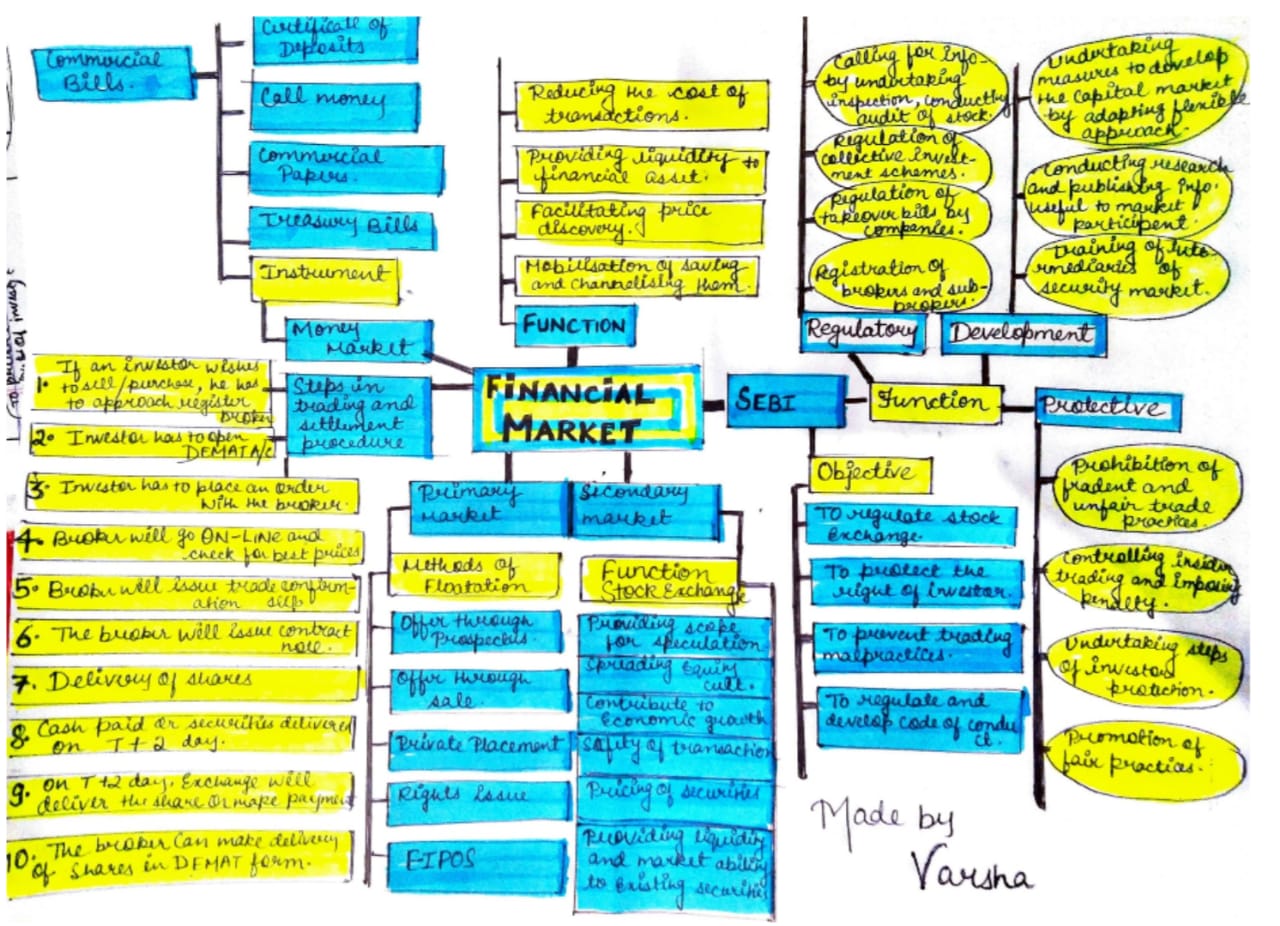 Certificate of
Deposits
Commercial
Bills.
Call money
Commercial
Papers.
Treasury Bills
Instrument
Money
Market
Reducing the cost of
transactions.
Providing liquidity to
financial asset.
Facilitating price
discovery.
Mobilisation of saving
and channelising them.
FUNCTION
FINANCIAL
MARKET
Steps in
trading and
settlment
procedure
1. If an investor wishes
to sell/purchase, he has
to approach register
broker
2. Investor has to open
DEMAT A/c
3. Investor has to place an order
with the broker.
4. Broker will go ON-LiNe and
check for best prices
5. Broker will issue trade confirm-
ation slip
6. The broker will issue contract
note.
7. Delivery of shares
8. Cash paid or securities deliverer
on T+2 day.
9. on T+2 day, Exchange will
deliver the share or make payment
10. The broker can make delivery
of shares in DEMAT form.
Primary
market
Methods of
Floatation
Offer through
Prospectus.
Offer through
sale.
Private Placement
Rights Issue
E-IPOS
Secondary
market
Function
Stock Exchange
Providing scope
for speculation
Spreading Equity
cult.
Contribute to
Economic growth
Safity of transaction
Pricing of securities
Providing liquidity
and market ability
to Existing securities
SEBI
Function
Regulatory
Calling for info-
by undertaking
inspection, conducting
audit of stock.
Regulation of
collective invest-
ment schemes.
Regulation of
takeover bids by
companies.
Registration of
brokers and sub-
brokers.
Development
Undertaking
measures to develop
the capital market
by adapting flexible
approach.
Conducting research
and publishing info.
useful to market
participent.
Training of inte
rmediaries of
security market.
Protective
Prohibition of
fradent and
unfair trade
practices.
Controlling insider
trading and imposing
penelty.
Undertaking steps
of investors
protection.
Promotion of
fair practias.
Objective
TO regulate stock
Exchange.
To protect the
right of investor.
To prevent trading
malpractices.
To regulate and
develop code of condu
ct.
Made by
Varsha